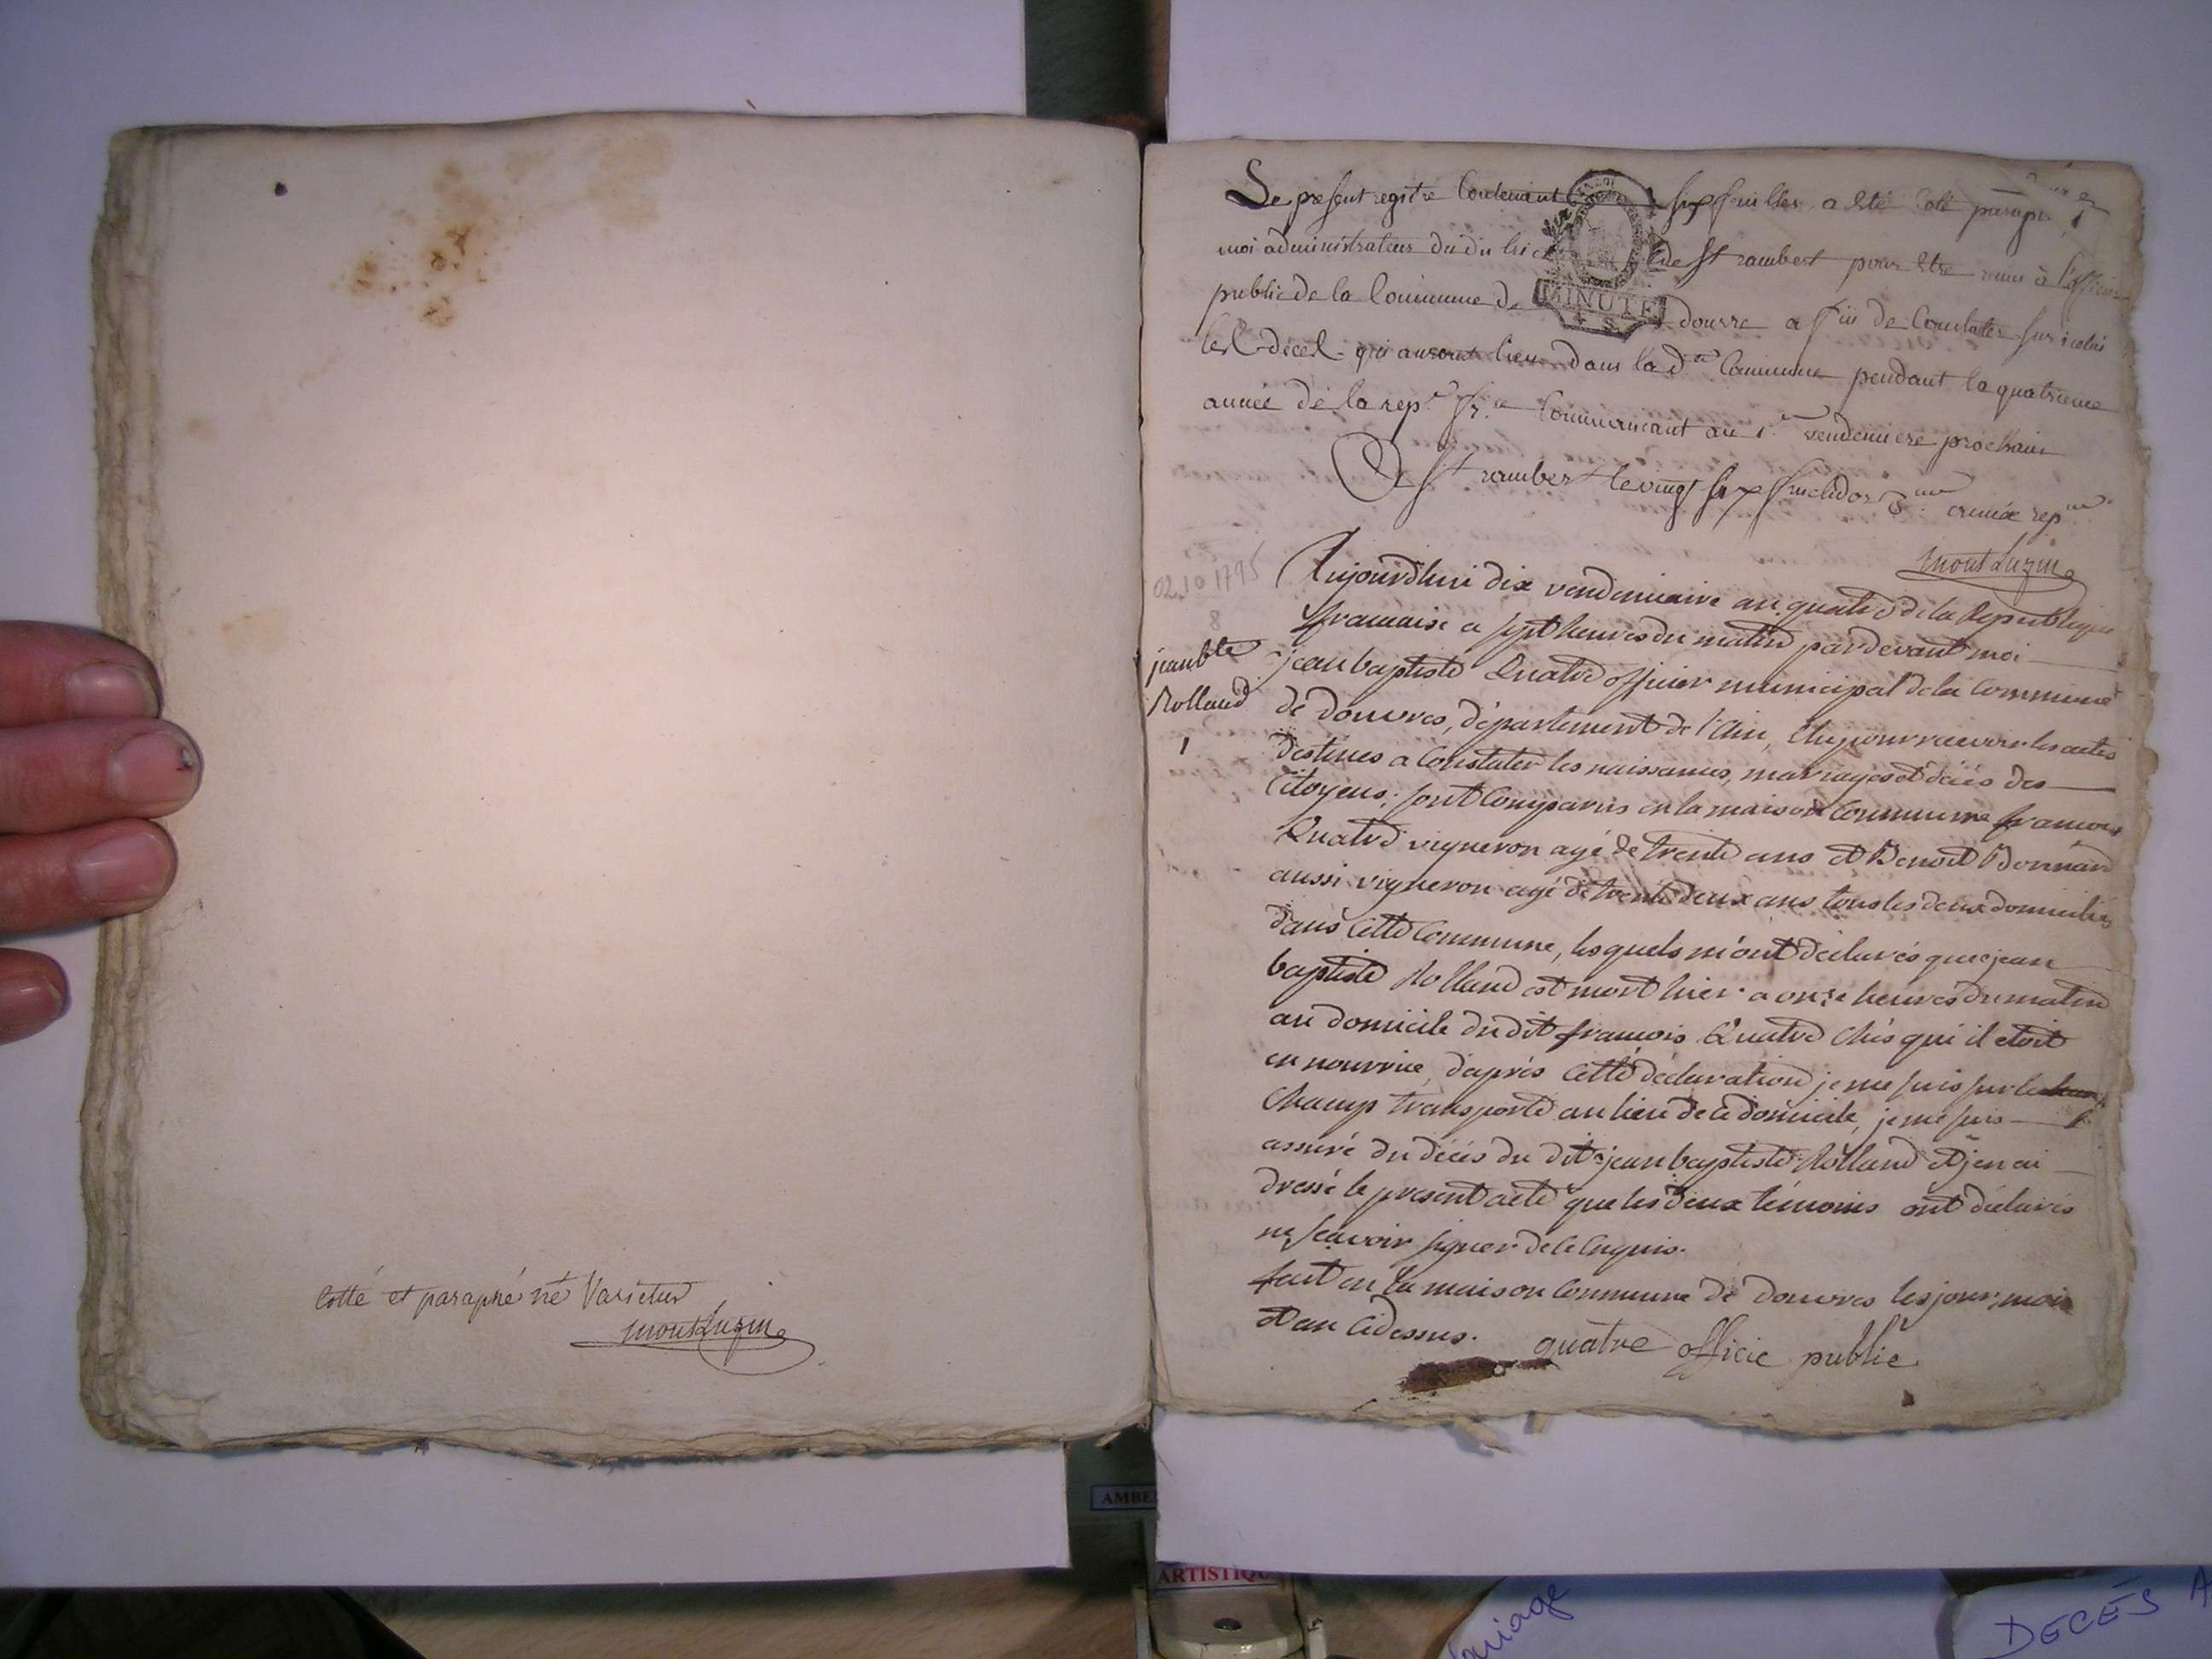 cotté et paraphé né Varietur
montluzin
Le present registre Contenant six feuilles a été Coté paraphé
moi administrateur du district de St rambert pour être remis à l'officier
public de la Commune de douvre a fin de Constater sur icelui
les décès qui auront lieu dans la d.te Commune pendant la quatrieme
année de la rep.e fr.se Commencant au 1.er vendemiere prochain
A St rambert le vingt six fructidor 3.me année rep.ne
montluzin
MINUTE
02 10 1795
8
jean bte
Rolland
1
Aujourdhui dix vendemiaire an quatre de la Republique
francaise a sept heures du matin pardevant moi
jean baptiste Quatre officier municipal de la Commune
de douvres, département de l'Ain, élu pour recevoir les actes
destinés a Constater les naissances, mariages et décès des
Citoyens; sont Comparus en la maison Commune francois
Quatre vigneron agé de trente ans et Benoit Bonnard
aussi vigneron agé de trente deux ans tous les deux domiciliés
dans cette Commune, les quels m'ont déclarés que jean
baptiste Rolland est mort hier a onze heures du matin
au domicile du dit francois Quatre chés qui il etoit
en nourrice, d'après cette déclaration je me suis sur le
Champ transporté au lieu de ce domicile, je me suis
assuré du décés du dit jean baptiste Rolland et j'en ai
dressé le present acte que les deux témoins ont déclarés
ne scavoir signer de ce Enquis.
fait en la maison Commune de douvres les jour, mois
et an Cidessus.
quatre officie public
AMBE
ARTISTIQU
riage
DECÈS A